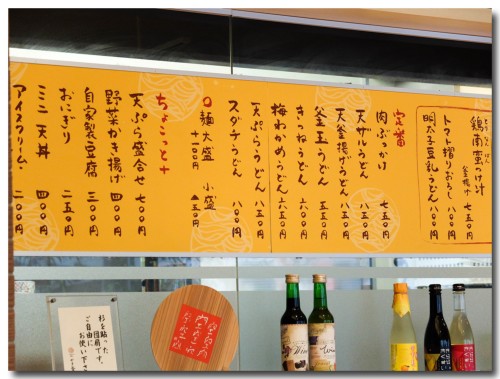 鶏南蛮つけ汁
釜揚げ 七五〇円
トマト摺りおろし
明太子豆乳うどん 八八〇円
定番
肉ぶっかけ 七五〇円
天ザルうどん 八五〇円
天釜揚げうどん 八五〇円
釜玉うどん 六五〇円
きつねうどん 六五〇円
梅わかめうどん 六五〇円
天ぷらうどん 八五〇円
スダチうどん 八〇〇円
麺大盛 +一〇〇円 小盛 ▲五〇円
ちょこっと+
天ぷら盛合せ 七〇〇円
野菜かき揚げ 四〇〇円
自家製豆腐 三〇〇円
おにぎり 二五〇円
ミニ天丼 四〇〇円
アイスクリーム 二〇〇円
杉を貼った
団扇です。
ご自由に
お使い下さい